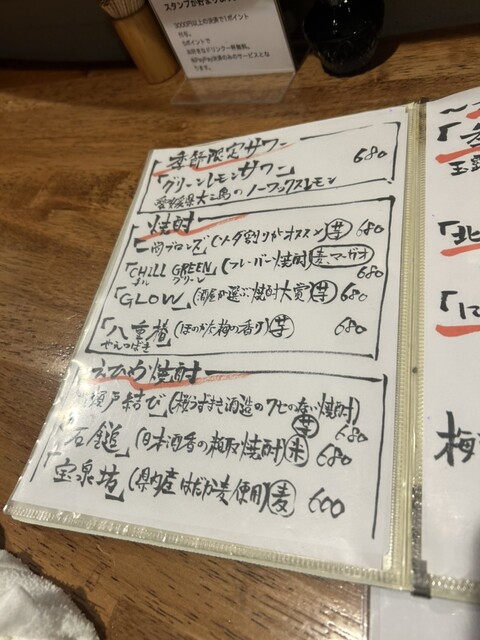 スタンプが貯まり
3000円以上の決済で1ポイント
付与。
5ポイントで
お好きなドリンク一杯無料。
※PayPay決済のみのサービスとな
ります。
季節限定サワー
「グリーンレモンサワー」 680
愛媛県大三島のノーワックスレモン
焼酎
ブロンズ」(ソーダ割りがオススメ)芋 680
「CHILL GREEN」(フレーバー焼酎)麦、マーガオ
チル グリーン 680
「GLOW」(酒屋が選ぶ焼酎大賞)芋 680
「八重椿」(ほのかな梅の香り)芋 680
やえつばき
えひめ焼酎
瀬戸結び」(桜うずまき酒造の 焼酎)
芋 680
「石鎚」(日本酒香の 焼酎)米 680
「宝泉坊」(県内産はだか麦使用)麦 600
「北
「に
梅